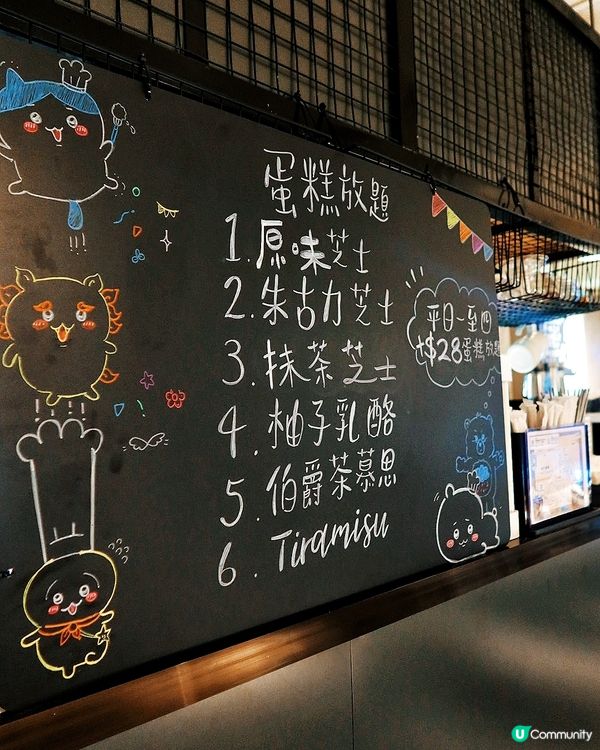 蛋糕放題
1. 原味芝士
2. 朱古力芝士
3. 抹茶芝士
4. 柚子乳酪
5. 伯爵茶慕思
6. Tiramisu
平日一至四
+$28蛋糕放題
U Community